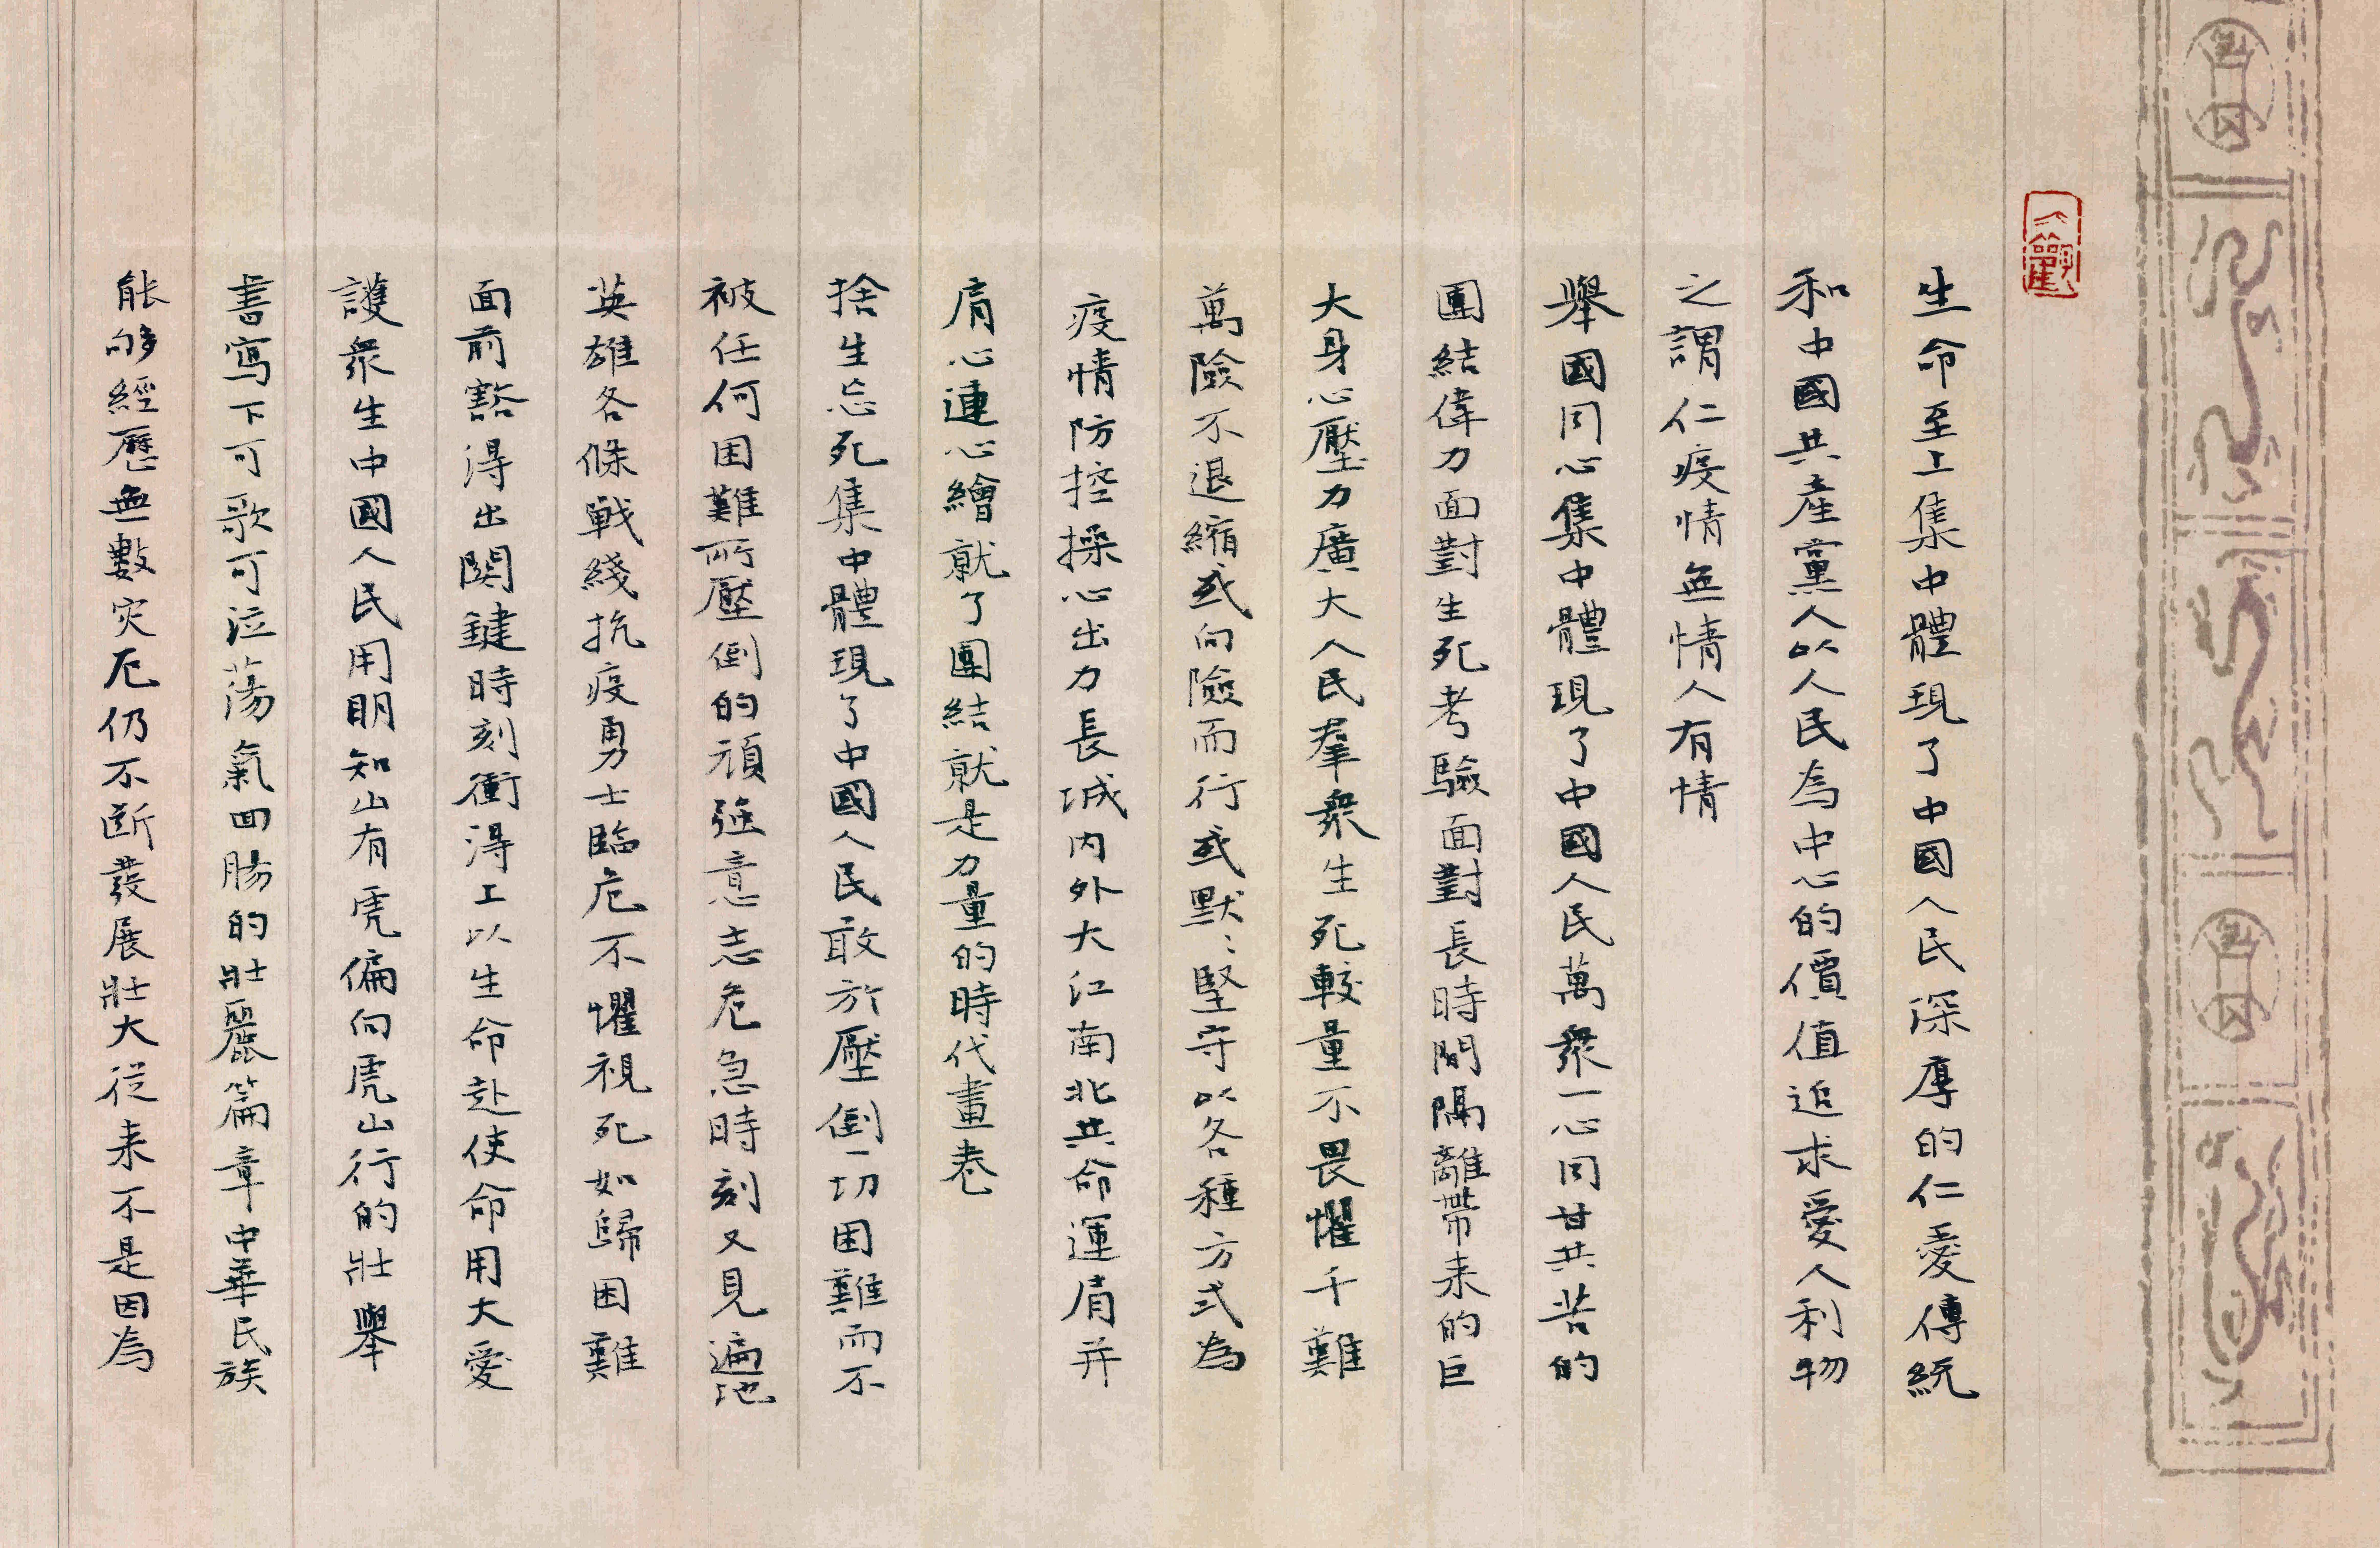 生命至上集中體現了中國人民深厚的仁愛傳統
和中國共產黨人以人民為中心的價值追求愛人利物
之謂仁疫情無情人有情
舉國同心集中體現了中國人民萬衆一心同甘共苦的
團結偉力面對生死考驗面對長時間隔離帶来的巨
大身心壓力廣大人民羣衆生死較量不畏懼千難
萬險不退縮或向險而行或默〻堅守以各種方式為
疫情防控操心出力長城内外大江南北共命運肩并
肩心連心繪就了團結就是力量的時代畫卷
捨生忘死集中體現了中國人民敢於壓倒一切困難而不
被任何困難所壓倒的頑强意志危急時刻又見遍地
英雄各條戰綫抗疫勇士臨危不懼視死如歸困難
面前豁得出関鍵時刻衝得上以生命赴使命用大愛
護衆生中國人民用明知山有虎偏向虎山行的壯舉
書寫下可歌可泣蕩氣回腸的壯麗篇章中華民族
能够經歷無數灾厄仍不断發展壯大從来不是因為